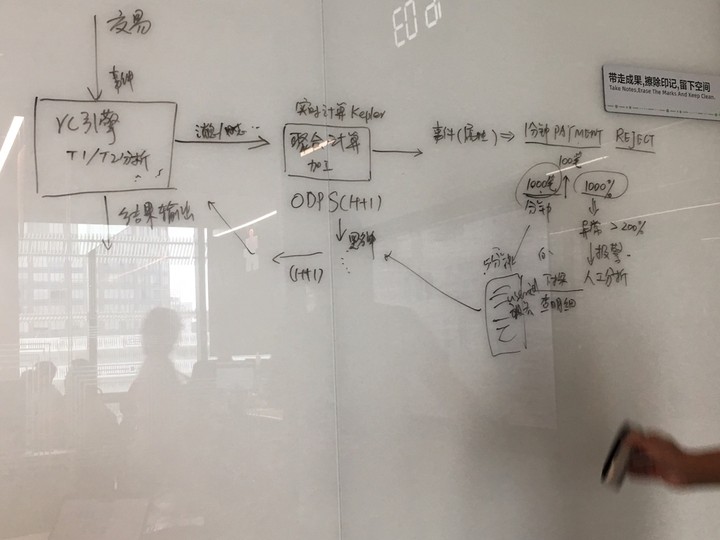 交易
事件
VC引擎
T1/T2分析
结果输出
消息
实时计算 Kepler
聚合计算
加工
ODPS(H+1)
黑名单
(H+1)
事件(
1分钟 PAYMENT REJECT
100笔
1000笔
分钟
1000%
异常 > 200%
报警
人工分析
下钻
查明细
带走成果,擦除印记,留下空间
Take Notes.Erase The Marks And Keep Clean.